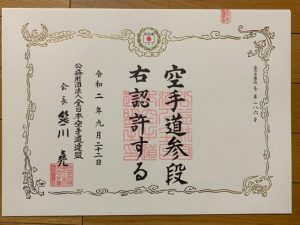 空手道参段
右認許する
令和二年九月二十二日
公益財団法人全日本空手道連盟
会長 笹川 堯